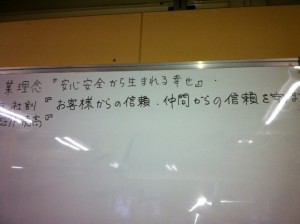 業理念『安心安全から生まれる幸せ』
社訓『お客様からの信頼、仲間からの信頼を守